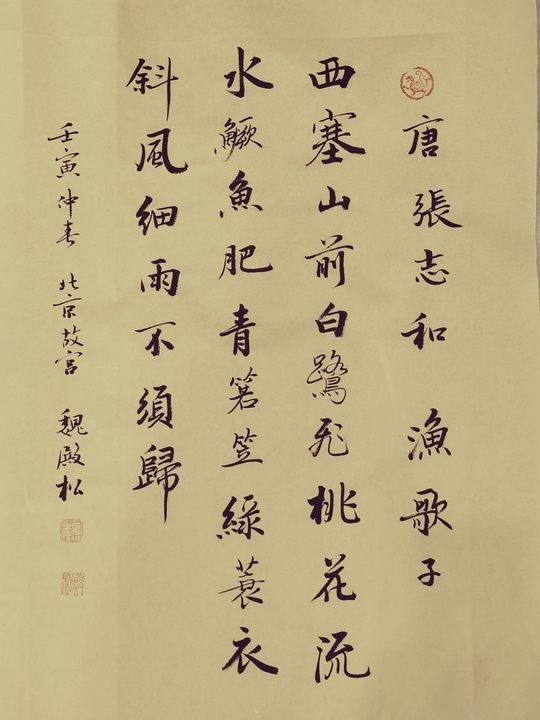 唐張志和 漁歌子
西塞山前白鷺飛桃花流
水鱖魚肥青箬笠綠蓑衣
斜風細雨不須歸
壬寅仲春 北京故宮 魏殿松